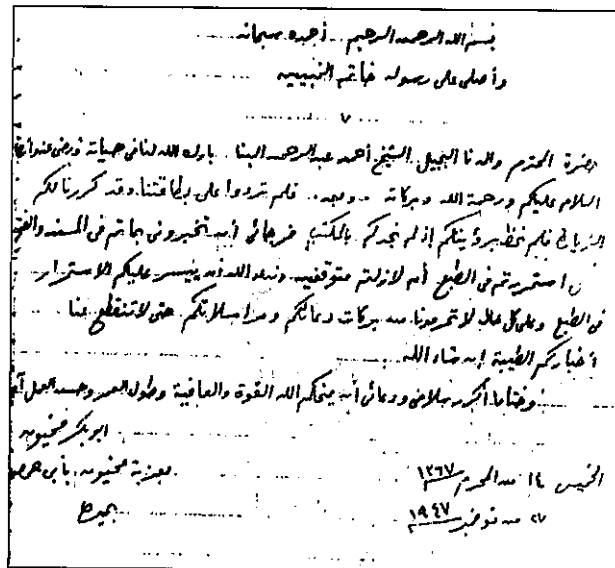 بسم الله الرحمن الرحيم .. أحمده سبحانه
وأصلي على رسوله خاتم النبيين
٧
حضرة المحترم والدنا البجيل الشيخ أحمد عبد الرحمن البنا .. بارك الله لنا في حياته ورضي عنه
السلام عليكم ورحمة الله وبركاته .. وبعد .. فلم تردوا على بطاقتنا وقد كررنا لكم
الزيارة فلم نحظ برؤيتكم إذ لم نجدكم بالمكتب فرجائي أن تخبروني بما تم في المسند والفتح
استمررتم في الطبع أم لازلتم متوقفين وندعو الله أن ييسر عليكم الاستمرار
في الطبع وعلى كل حال لا تحرمونا من بركات دعائكم ومراسلاتكم حتى لا تنقطع عنا
أخباركم الطيبة إن شاء الله
وختاما أكرر سلامي ودعائي أن يمنحكم الله القوة والعافية وطول العمر وحسن العمل
ابو بكر مخيون
الخميس ١٤ من المحرم ١٣٦٧ بعزبة مخيون بأبي حمص
٢٧ من نوفمبر ١٩٤٧ بحيرة